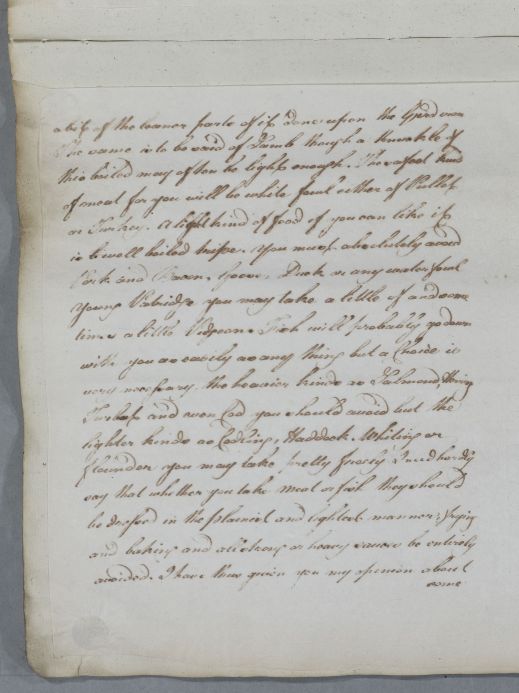 a bit of the leaner parts of it done upon the Gird iron
The same is to be said of Lamb though a knuckle of
this boiled may often be light enough. The safest kind
of meat for you will be white fowl either of Pullet
or Turkey. A light kind of food if you can like it
is well boiled tripe. you must absolutely avoid
Pork and Bacon, Goose, Duck or any water fowl
Young Patridge you may take a little of and some
times a little Pidgeon. Fish will probably go down
with you as easily as any thing but a Choice is
very necessary the heavier kinds as Salmond Herring
Turbot and even Cod you should avoid but the
lighter kinds as Codling, Haddock, Whiting or
flounder you may take pretty freely I need hardly
say that whether you take meat or fish they should
be dressed in the plainest and lightest manner; frying
and baking and all strong or heavy sauces be entirely
avoided. I have thus given you my opinion about
some